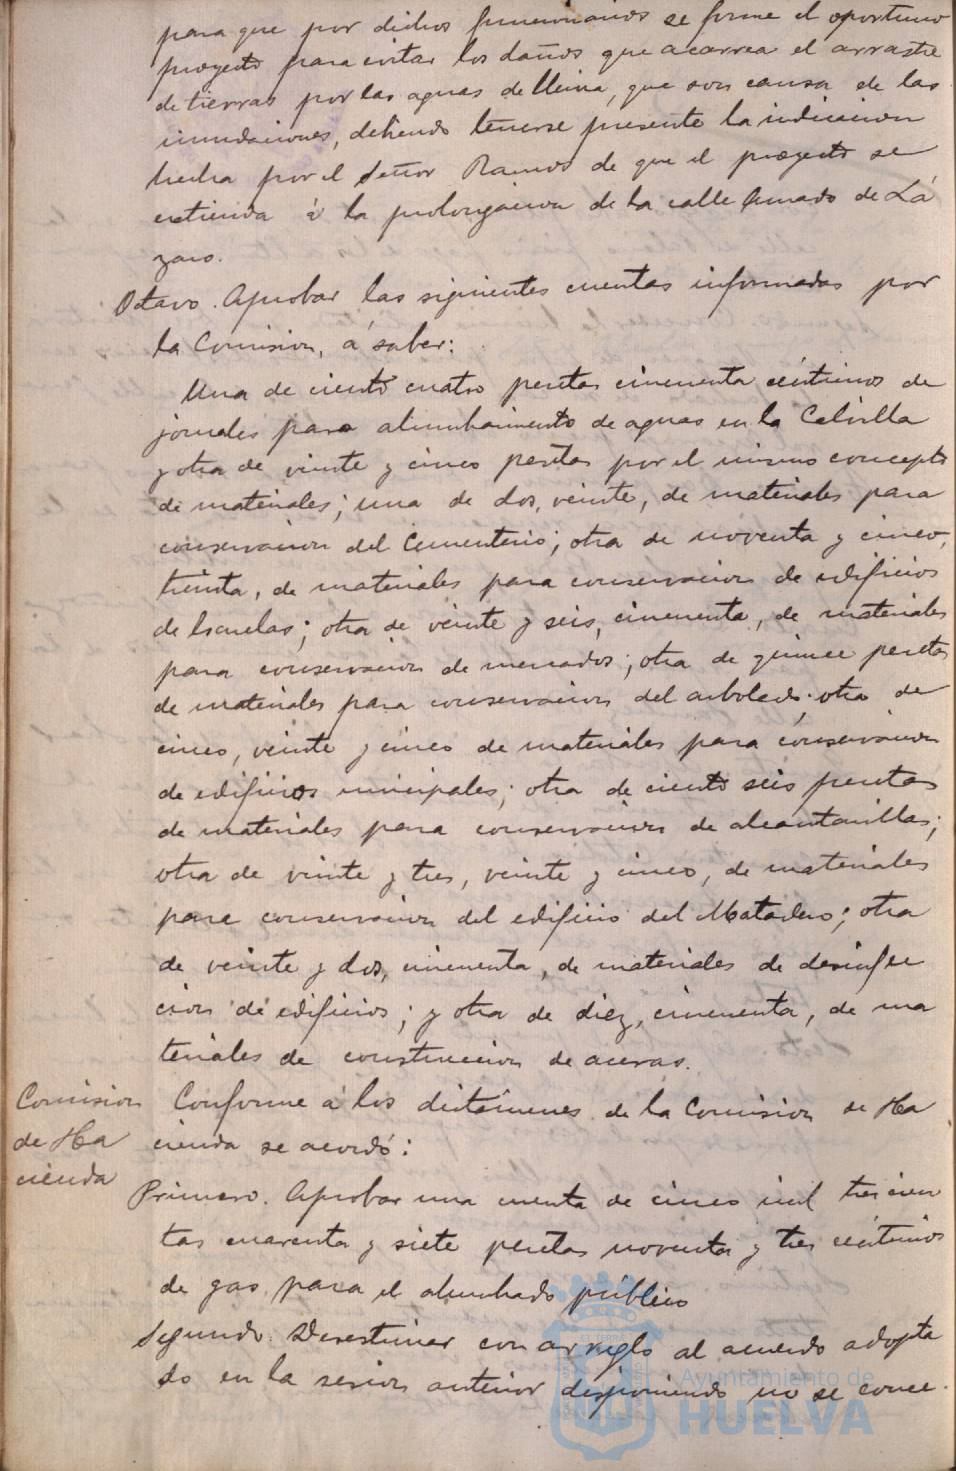 para que por dichos funcionarios se forme el oportuno
proyecto para evitar los daños que acarrea el arrastre
de tierras por las aguas de lluvia, que son causa de las
inundaciones, debiendo tenerse presente la indicacion
hecha por el Señor Ramos de que el proyecto se
extienda á la prolongacion de la calle Amado de Lá
zaro.
Octavo. Aprobar las siguientes cuentas informadas por
la Comision, á saber:
Una de ciento cuatro pesetas cincuenta céntimos de
jornales para alumbramiento de aguas en la
y otra de veinte y cinco pesetas por el mismo concepto
de materiales; una de dos, veinte, de materiales para
conservacion del Cementerio; otra de noventa y cinco,
treinta, de materiales para conservacion de edificios
de Escuelas; otra de veinte y seis, cincuenta, de materiales
para conservacion de mercados; otra de quince pesetas
de materiales para conservacion del arbolado; otra de
cinco, veinte y cinco de materiales para conservacion
de edificios municipales; otra de ciento seis pesetas
de materiales para conservacion de alcantarillas;
otra de veinte y tres, veinte y cinco, de materiales
para conservacion del edificio del Matadero; otra
de veinte y dos, cincuenta, de materiales de desinfec
cion de edificios; y otra de diez, cincuenta, de ma
teriales de construccion de aceras.
Comision
de Ha
cienda
Conforme á los dictámenes de la Comision de Ha
cienda se acordó:
Primero. Aprobar una cuenta de cinco mil trescien
tas cuarenta y siete pesetas noventa y tres céntimos
de gas para el alumbrado público
Segundo. Desestimar con arreglo al acuerdo adopta
do en la sesion anterior disponiendo no se conce-
Ayuntamiento de
HUELVA